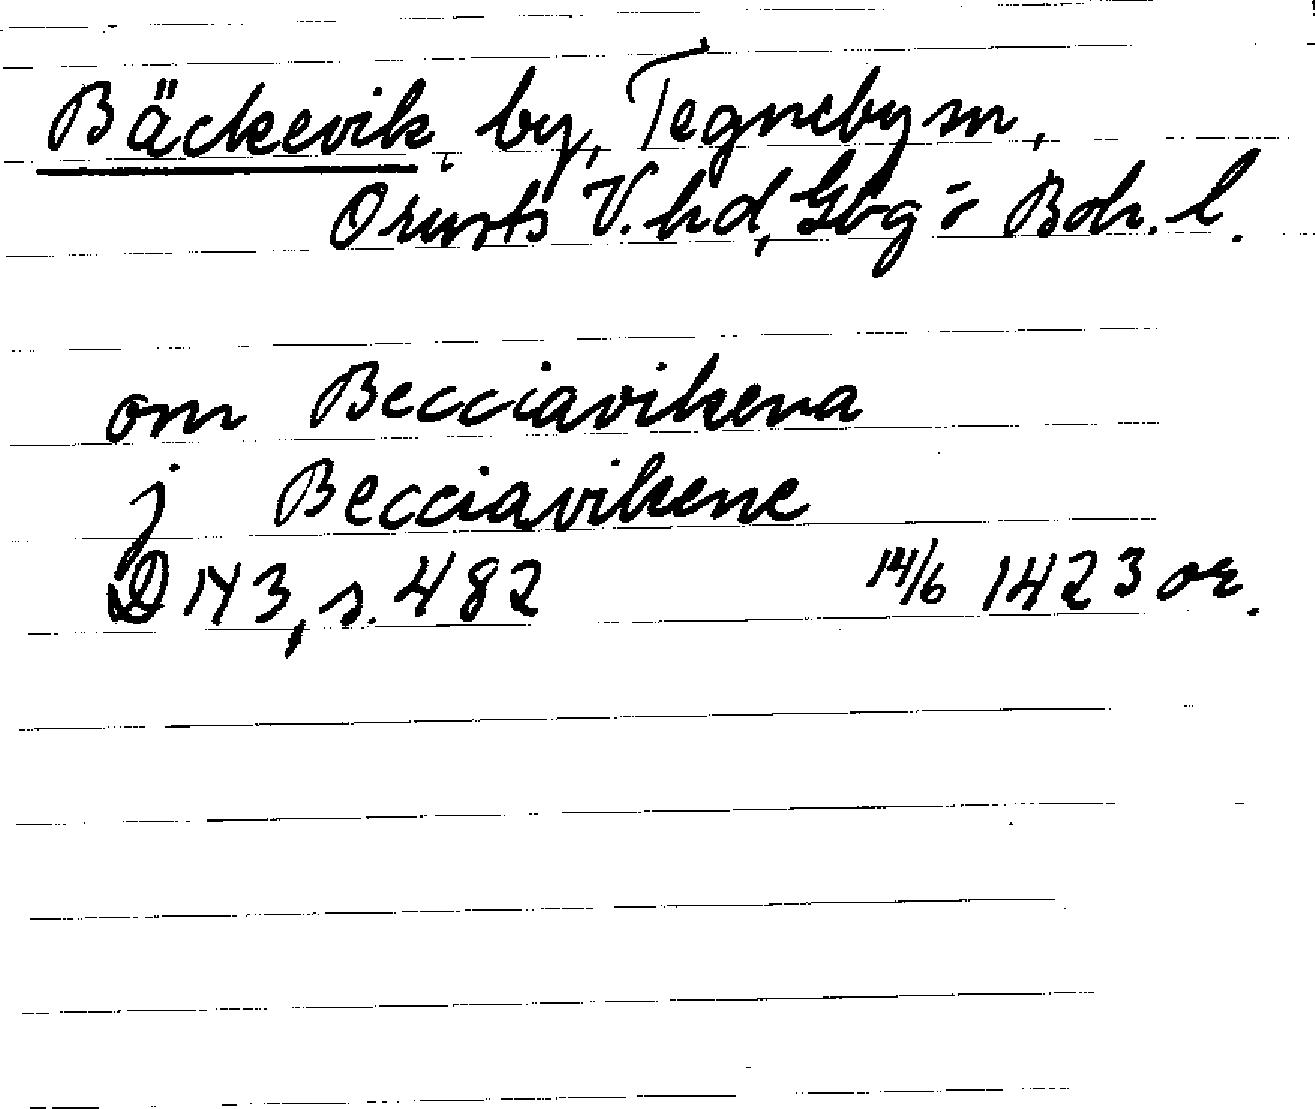 Bäckevik, by, Tegneby sn,
Orusts V. hd, Gbg o Boh. l.
om Becciavikena
j Becciavikene
D 143, s. 482 14/6 1423 or.